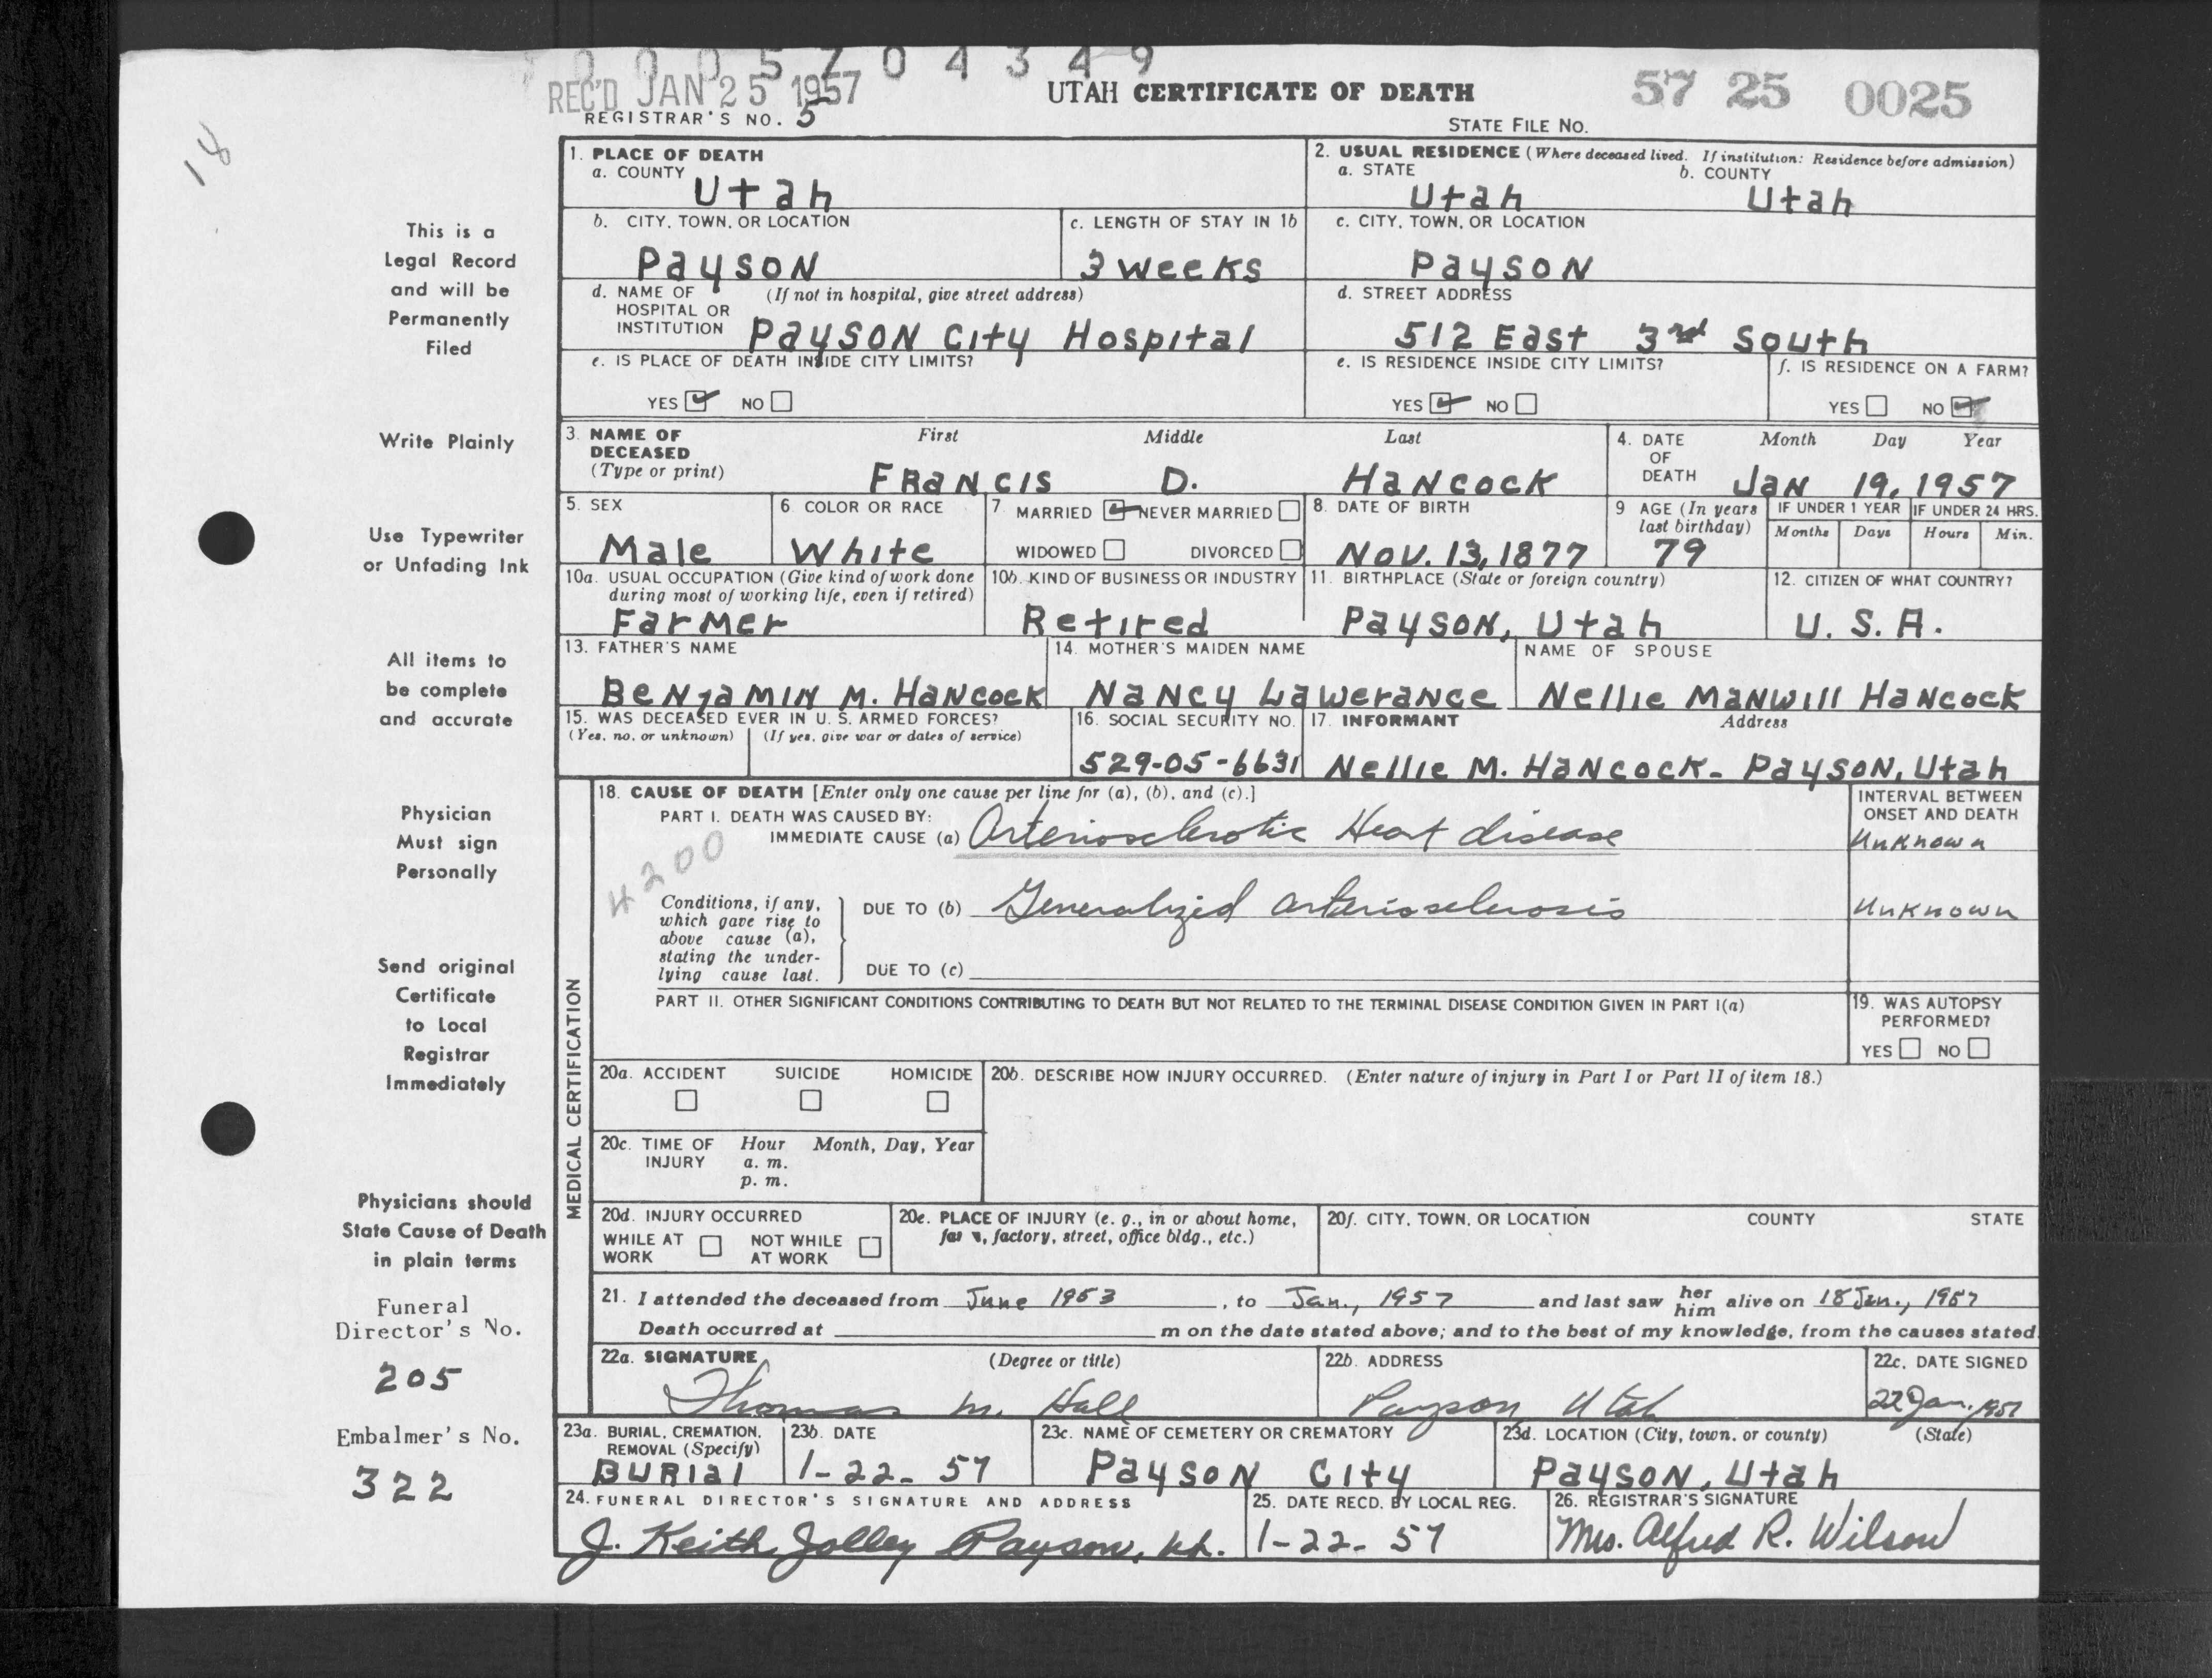 0 0 0 5 7 0 4 3 4 9
REC'D JAN 25 1957
UTAH CERTIFICATE OF DEATH
57 25 0025
REGISTRAR'S NO. 5
STATE FILE NO.
18
This is a
Legal Record
and will be
Permanently
Filed
Write Plainly
Use Typewriter
or Unfading Ink
All items to
be complete
and accurate
Physician
Must sign
Personally
Send original
Certificate
to Local
Registrar
Immediately
Physicians should
State Cause of Death
in plain terms
Funeral
Director's No.
205
Embalmer's No.
322
1. PLACE OF DEATH
a. COUNTY
Utah
2. USUAL RESIDENCE (Where deceased lived. If institution: Residence before admission)
a. STATE b. COUNTY
Utah Utah
b. CITY, TOWN, OR LOCATION
Payson
c. LENGTH OF STAY IN 1b
3 weeks
c. CITY, TOWN, OR LOCATION
Payson
d. NAME OF (If not in hospital, give street address)
HOSPITAL OR
INSTITUTION Payson City Hospital
d. STREET ADDRESS
512 East 3rd South
e. IS PLACE OF DEATH INSIDE CITY LIMITS?
YES NO
e. IS RESIDENCE INSIDE CITY LIMITS?
YES NO
f. IS RESIDENCE ON A FARM?
YES NO
3. NAME OF First Middle Last
DECEASED
(Type or print) Francis D. Hancock
4. DATE Month Day Year
OF
DEATH Jan 19, 1957
5. SEX
Male
6. COLOR OR RACE
White
7. MARRIED NEVER MARRIED
WIDOWED DIVORCED
8. DATE OF BIRTH
Nov. 13, 1877
9 AGE (In years
last birthday)
79
IF UNDER 1 YEAR IF UNDER 24 HRS.
Months Days Hours Min.
10a. USUAL OCCUPATION (Give kind of work done
during most of working life, even if retired)
Farmer
10b. KIND OF BUSINESS OR INDUSTRY
Retired
11. BIRTHPLACE (State or foreign country)
Payson, Utah
12. CITIZEN OF WHAT COUNTRY?
U. S. A.
13. FATHER'S NAME
Benjamin M. Hancock
14. MOTHER'S MAIDEN NAME
Nancy Lawerance
NAME OF SPOUSE
Nellie Manwill Hancock
15. WAS DECEASED EVER IN U. S. ARMED FORCES?
(Yes, no, or unknown) (If yes, give war or dates of service)
16. SOCIAL SECURITY NO.
529-05-6631
17. INFORMANT Address
Nellie M. Hancock - Payson, Utah
MEDICAL CERTIFICATION
18. CAUSE OF DEATH [Enter only one cause per line for (a), (b), and (c).]
PART I. DEATH WAS CAUSED BY:
IMMEDIATE CAUSE (a) Arteriosclerotic Heart disease
INTERVAL BETWEEN
ONSET AND DEATH
Unknown
4200
Conditions, if any,
which gave rise to
above cause (a),
stating the under-
lying cause last.
DUE TO (b) Generalized arteriosclerosis
Unknown
DUE TO (c)
PART II. OTHER SIGNIFICANT CONDITIONS CONTRIBUTING TO DEATH BUT NOT RELATED TO THE TERMINAL DISEASE CONDITION GIVEN IN PART I(a)
19. WAS AUTOPSY
PERFORMED?
YES NO
20a. ACCIDENT SUICIDE HOMICIDE
20b. DESCRIBE HOW INJURY OCCURRED. (Enter nature of injury in Part I or Part II of item 18.)
20c. TIME OF Hour Month, Day, Year
INJURY a. m.
p. m.
20d. INJURY OCCURRED
WHILE AT NOT WHILE
WORK AT WORK
20e. PLACE OF INJURY (e. g., in or about home,
farm, factory, street, office bldg., etc.)
20f. CITY, TOWN, OR LOCATION COUNTY STATE
21. I attended the deceased from June 1953, to Jan., 1957 and last saw her him alive on 18 Jan., 1957
Death occurred at m on the date stated above; and to the best of my knowledge, from the causes stated
22a. SIGNATURE (Degree or title)
Thomas M. Hall
22b. ADDRESS
Payson Utah
22c. DATE SIGNED
22 Jan. 1957
23a. BURIAL, CREMATION,
REMOVAL (Specify)
Burial
23b. DATE
1-22-57
23c. NAME OF CEMETERY OR CREMATORY
Payson City
23d. LOCATION (City, town, or county) (State)
Payson, Utah
24. FUNERAL DIRECTOR'S SIGNATURE AND ADDRESS
J. Keith Jolley Payson, Ut.
25. DATE RECD. BY LOCAL REG.
1-22-57
26. REGISTRAR'S SIGNATURE
Mrs. Alfred R. Wilson